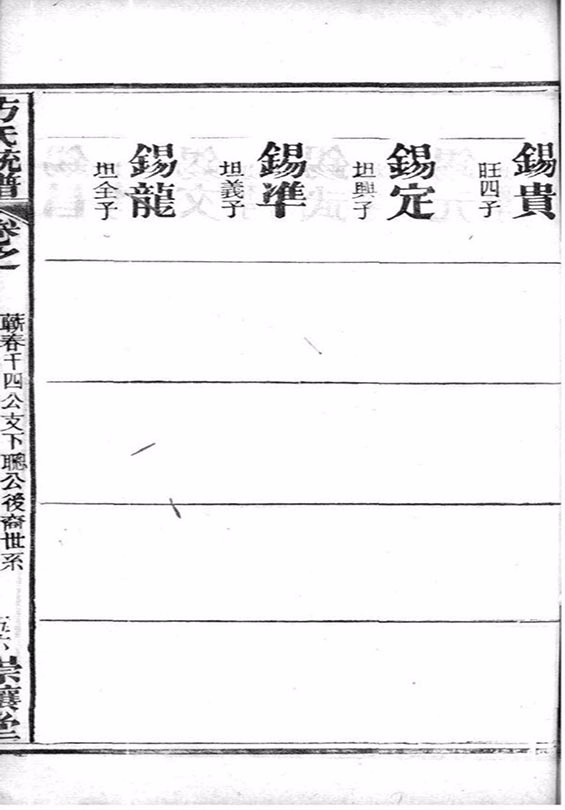 錫貴
旺四子
錫定
坦興子
錫準
坦義子
錫龍
坦全子
方氏統譜
卷之
蘄春千四公支下聰公後裔世系
五六
崇讓堂